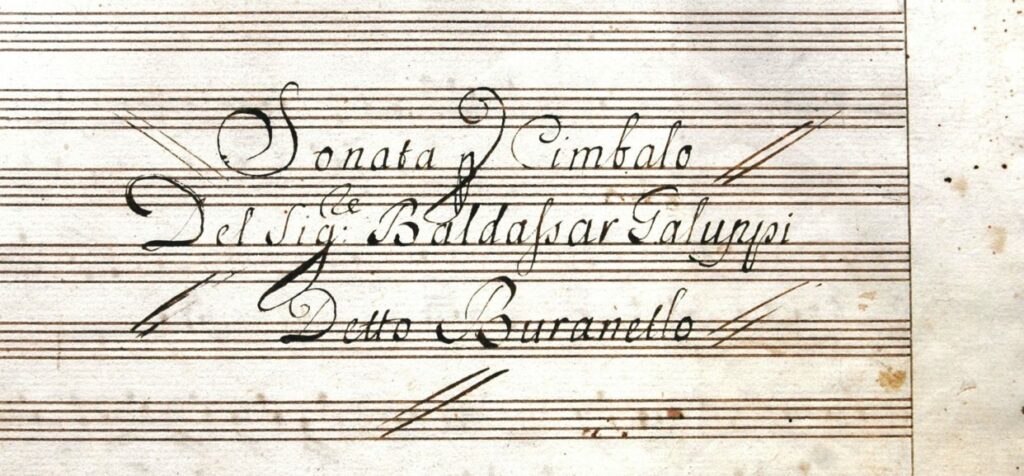 Sonata p Cimbalo
Del Sig:re Baldassar Galuppi
Detto Buranello